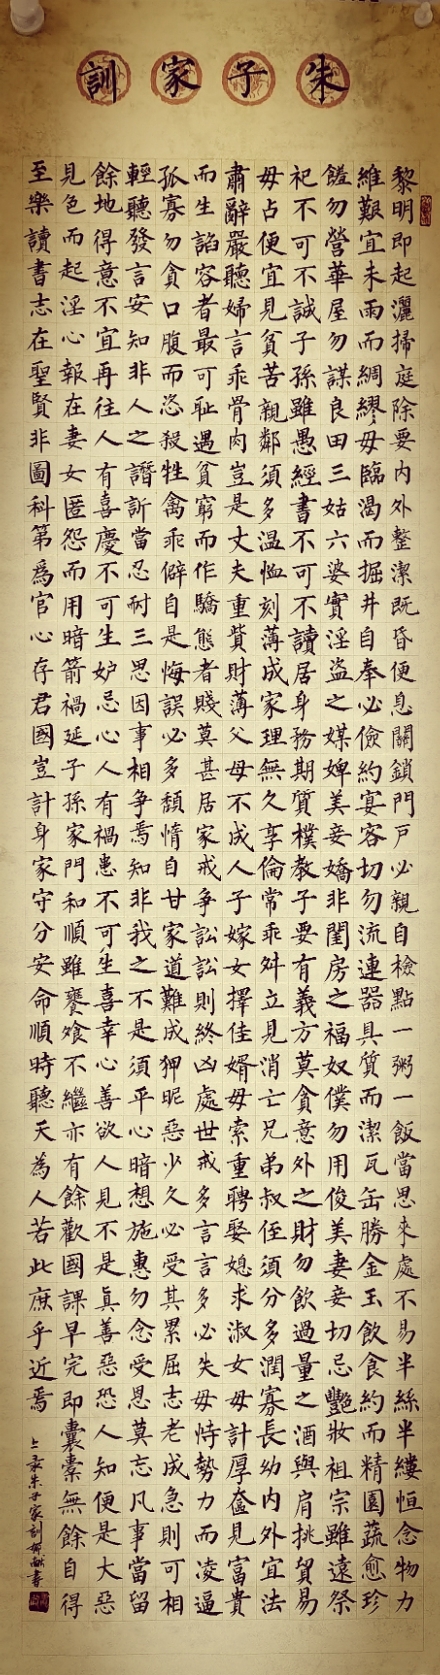 朱子家訓
黎明即起灑掃庭除要内外整潔既昏便息關鎖門戶必親自檢點一粥一飯當思來處不易半絲半縷恒念物力
維艱宜未雨而綢繆毋臨渴而掘井自奉必儉約宴客切勿流連器具質而潔瓦缶勝金玉飲食約而精園蔬愈珍
饈勿營華屋勿謀良田三姑六婆實淫盜之媒婢美妾嬌非閨房之福奴僕勿用俊美妻妾切忌艷妝祖宗雖遠祭
祀不可不誠子孫雖愚經書不可不讀居身務期質樸教子要有義方莫貪意外之財勿飲過量之酒與肩挑貿易
毋占便宜見貧苦親鄰須多温恤刻薄成家理無久享倫常乖舛立見消亡兄弟叔侄須分多潤寡長幼内外宜法
肅辭嚴聽婦言乖骨肉豈是丈夫重貲財薄父母不成人子嫁女擇佳婿毋索重聘娶媳求淑女毋計厚奩見富貴
而生諂容者最可恥遇貧窮而作驕態者賤莫甚居家戒爭訟訟則終凶處世戒多言言多必失毋恃勢力而凌逼
孤寡勿貪口腹而恣殺牲禽乖僻自是悔誤必多頹惰自甘家道難成狎昵惡少久必受其累屈志老成急則可相
輕聽發言安知非人之譖訴當忍耐三思因事相爭焉知非我之不是須平心暗想施惠勿念受恩莫忘凡事當留
餘地得意不宜再往人有喜慶不可生妒忌心人有禍患不可生喜幸心善欲人見不是真善惡恐人知便是大惡
見色而起淫心報在妻女匿怨而用暗箭禍延子孫家門和順雖饔飧不繼亦有餘歡國課早完即囊橐無餘自得
至樂讀書志在聖賢非圖科第為官心存君國豈計身家守分安命順時聽天為人若此庶乎近焉
朱子家訓